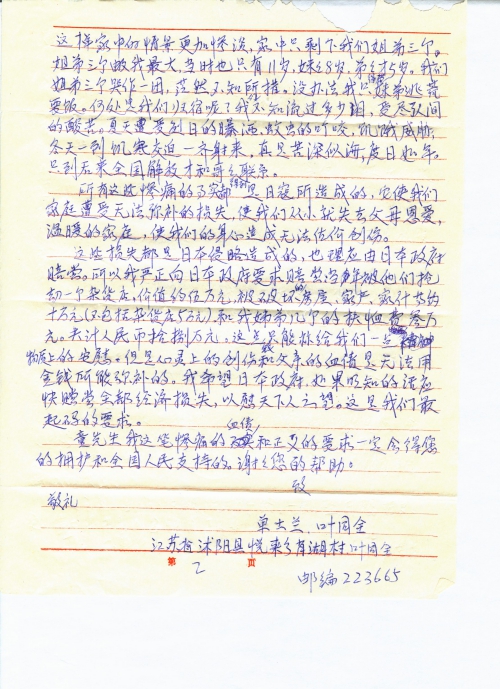 这样家中的情景更加惨淡，家中只剩下我们姐弟三个。
姐弟三个数我最大，当时也只有11岁，妹8岁，弟才5岁。我们
姐弟三个哭作一团，茫然不知所措。没办法我只妹弟逃荒
要饭。何处是我们归宿呢？我不知流过多少泪，受尽人间
的酸苦。夏天遭受烈日的曝晒，蚊虫的叮咬，饥饿威胁，
冬天一到饥寒交迫一齐射来，真是苦深似海，度日如年。
只到后来全国解放才和哥哥联系。
所有这些惨痛的家都是日寇所造成的，它使我们
家庭遭受无法弥补的损失，使我们从小就失去父母恩爱，
温暖的家庭，使我们的身心造成无法估价创伤。
这些损失都是日本侵略造成的，也理应由日本政府
赔偿。所以我严正向日本政府要求赔偿当年被他们抢
劫一个杂货店，价值约伍万元，被破坏房屋、家产、家什共约
十万元(不包括杂货店伍万元)和我姊弟几个的扶恤费叁万
元。共计人民币拾捌万元。这点只能补给我们一点精神
物质上的安慰。但是心灵上的创伤和父亲的血债是无法用
金钱所能弥补的。我希望日本政府，如果明知的话应
快赔偿全部经济损失，以慰天下人之望。这是我们最
起码的要求。
童先生我这些惨痛的血债和正义的要求一定会得您
的拥护和全国人民支持的。谢谢您的帮助。
致
敬礼
单士兰 叶同全
江苏省沭阳县悦来乡有湖村 叶同全
第 2 页
邮编 223665